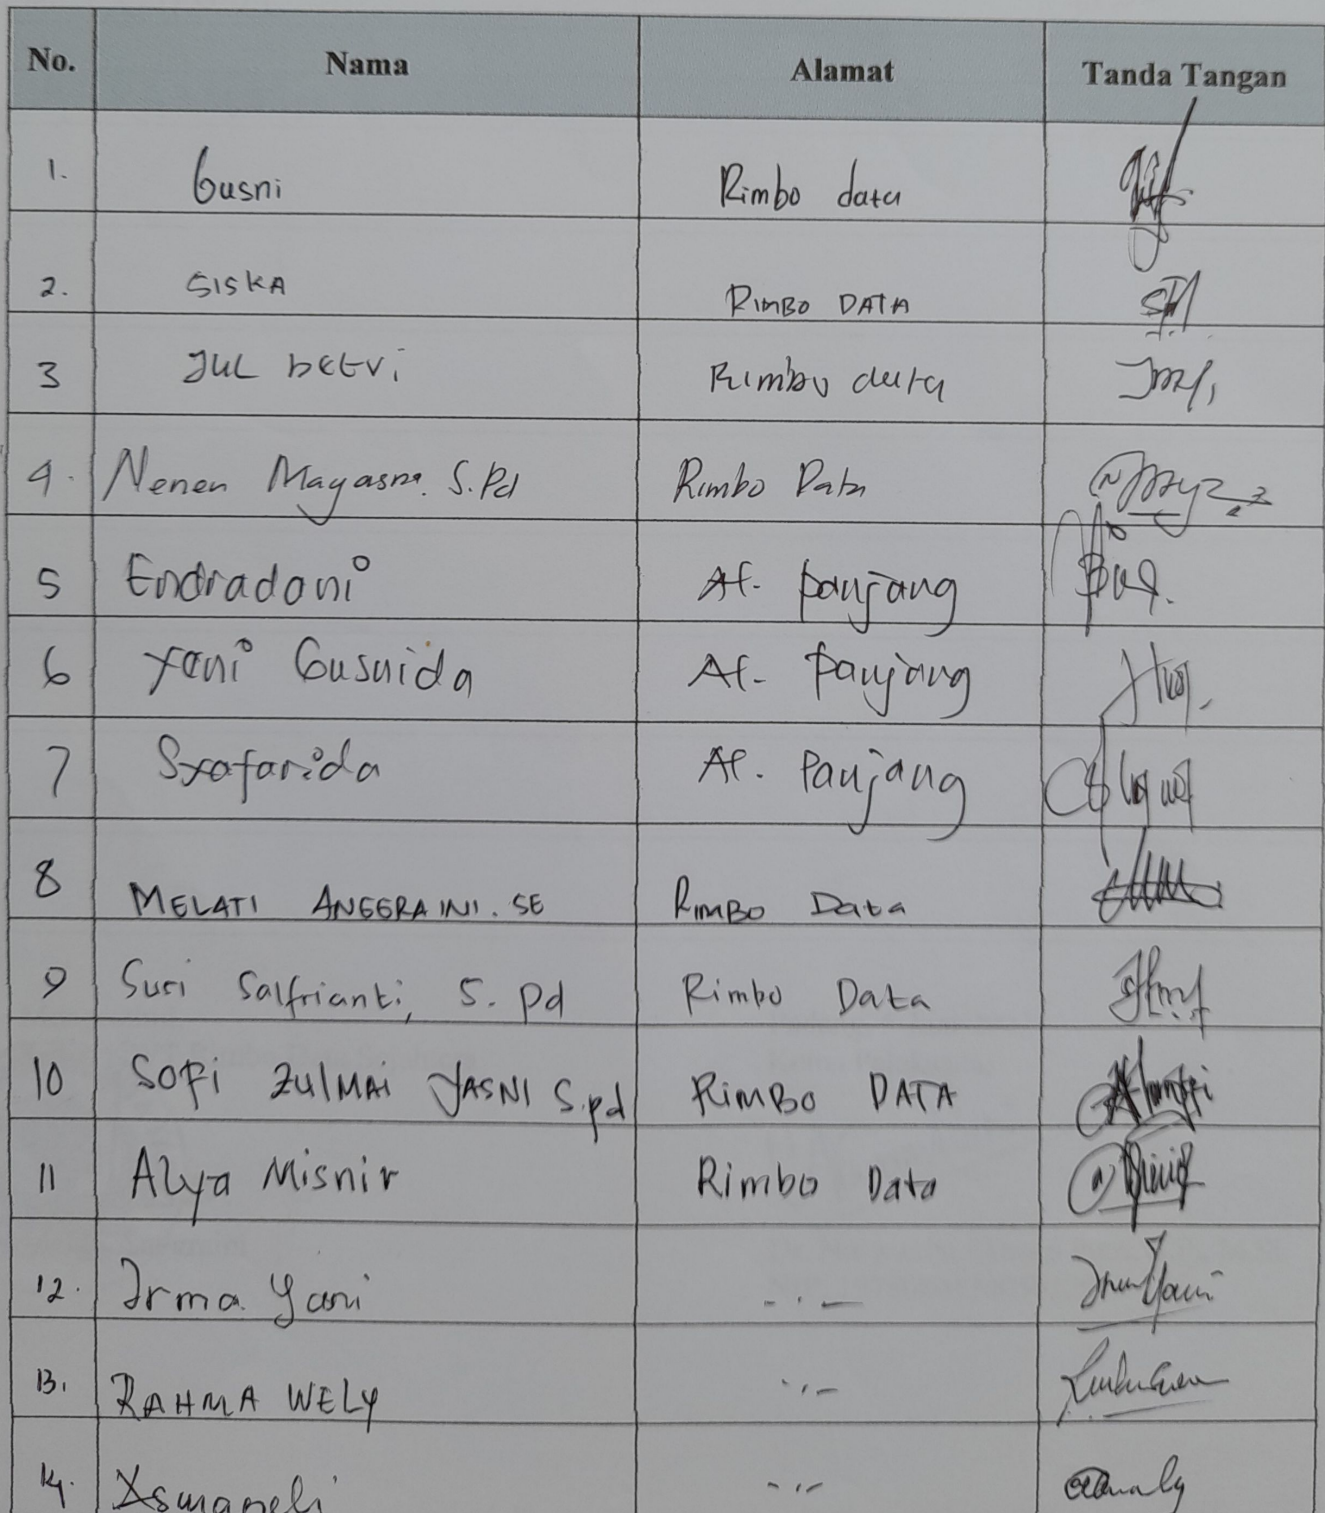 No. Nama Alamat Tanda Tangan
1. Gusni Rimbo data
2. SISKA RIMBO DATA
3 JUL DETVi Rimbo data
4. Nenen S.Pd Rimbo Data
5 Endradani Af. panjang
6 Yani Gusnida Af. panjang
7 Syafarida Af. Panjang
8 MELATI ANGGRAINI. SE RIMBO Data
9 Suri Salfrianti, S. Pd Rimbo Data
10 SOFi ZUlMAi YASNI S.pd RiMBO DATA
11 Alya Misnir Rimbo Data
12. Irma Yani - ' -
13. RAHMA WELY - ' -
14. - ' -